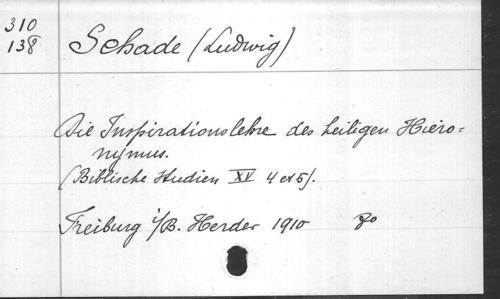 310
138
Schade (Ludwig)
Die Inspirationslehre des heiligen Hiero=
nymus.
(Biblische Studien XV 4 et 5).
Freiburg i/B. Herder 1910 8o